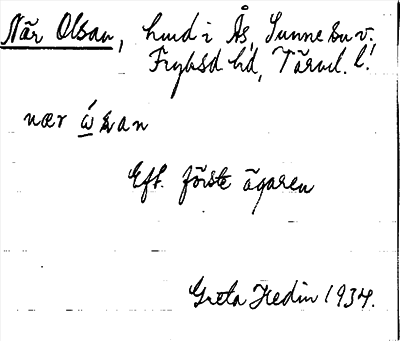 När Olsan, hmd i Ås, Sunne sn v.
Fryksd hd, Värml. l.
nær ẃsan
Eft. förste ägaren
Greta Hedin 1934.